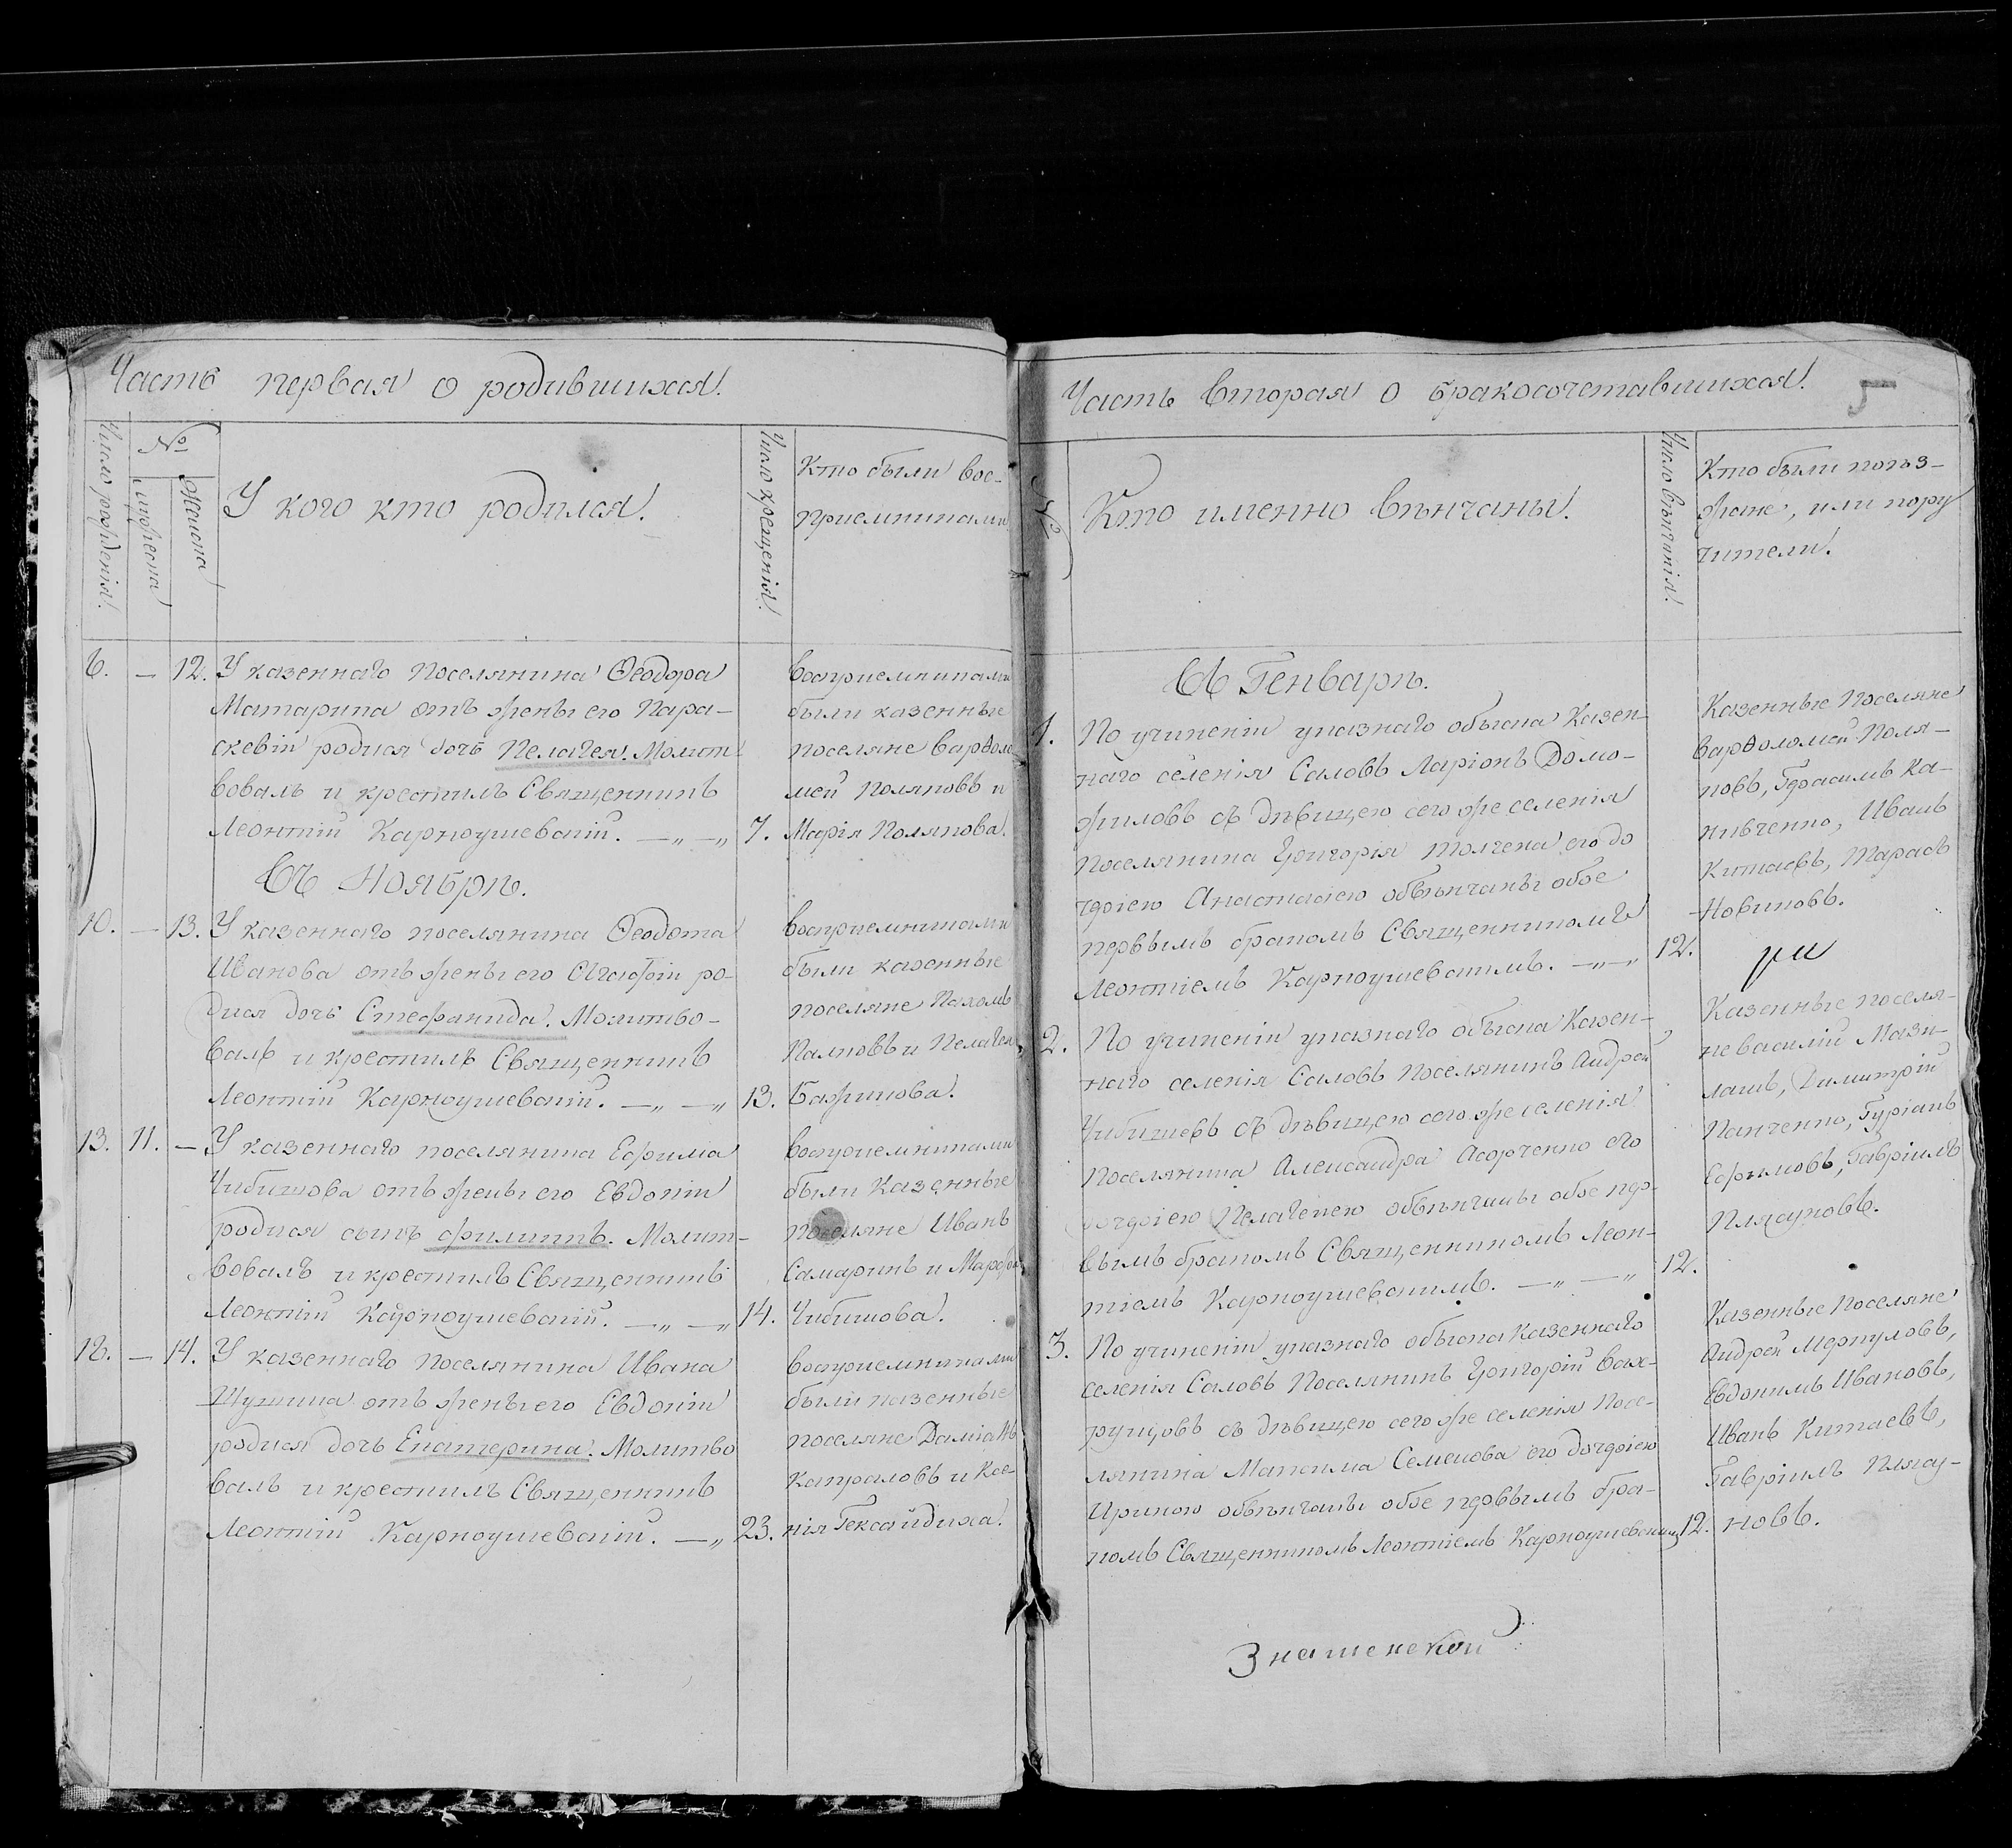 Часть первая о родившихся.
Число рожденія.
№
мужеска
Женска
У кого кто родился.
Число крещенія.
Кто были вос-
приемниками
6. — 12. У казеннаго поселянина Ѳеодора
Матарина отъ жены его Пара-
скевіи родися дочь Пелагея. Молит-
вовалъ и крестилъ Священникъ
Леонтій Карноушевскій. —„—„ 7.
восприемниками
были казенные
поселяне Варѳоло
мей Поляковъ и
Марія Полякова.
Въ Ноябрѣ.
10. — 13. У казеннаго поселянина Ѳеодота
Иванова отъ жены его Агафіи ро-
дися дочь Стефанида. Молитво-
валъ и крестилъ Священникъ
Леонтій Карноушевскій. —„—„ 13.
восприемниками
были казенные
поселяне Пахомъ
и Пелагея
13. 11. — У казеннаго поселянина Ефима
Чибишова отъ жены его Евдокіи
родися сынъ Филиппъ. Молит-
вовалъ и крестилъ Священникъ
Леонтій Карноушевскій. —„—„ 14.
восприемниками
были Казенные
поселяне Иванъ
Самаринъ и Марфа
Чибишова.
18. — 14. У казеннаго поселянина Ивана
Шушина отъ жены его Евдокіи
родися дочь Екатерина. Молитво
валъ и крестилъ Священникъ
Леонтій Карноушевскій. —„ 23.
восприемниками
были казенные
поселяне Даміанъ
Капраловъ и Ксе-
нія Гексайдиха.
Часть вторая о бракосочетавшихся.
5
№
Кто именно вѣнчаны.
Число вѣнчанія.
Кто были поѣз-
жане, или пору
чители.
Въ Генварѣ.
1. По учиненіи указнаго обыска Казен-
наго селенія Саловъ Ларіонъ Домо-
жиловъ съ дѣвицею сего же селенія
поселянина Григорія Толчека его до
черію Анастасіею обвѣнчаны обое
первымъ бракомъ Священникомъ
Леонтіемъ Карноушевскимъ. —„—„ 12.
Казенные Поселяне
Варѳоломей Поля-
ковъ, Герасимъ Ка-
нивченко, Иванъ
Китаевъ, Тарасъ
Новиковъ.
2. По учиненіи указнаго обыска Казен-
наго селенія Саловъ поселянинъ Андрей
Чибишевъ съ дѣвицею сего же селенія
Поселянина Александра его
дочеріею Пелагеею обвѣнчаны обое пер-
вымъ бракомъ Священникомъ Леон-
тіемъ Карноушевскимъ. —„—„ 12.
Казенные поселя-
не Василій Мази-
лашъ, Димитрій
Панченко, Гуріанъ
Ефимовъ, Гавріилъ
Плясуновъ.
3. По учиненіи указнаго обыска казеннаго
селенія Саловъ Поселянинъ Григорій Вах-
рушовъ съ дѣвицею сего же селенія Посе-
лянина Максима Семенова его дочеріею
Ириною обвѣнчаны обое первымъ бра-
комъ Священникомъ Леонтіемъ Карноушевскимъ 12.
Казенные Поселяне
Андрей Меркуловъ,
Евдокимъ Ивановъ,
Иванъ Китаевъ,
Гавріилъ Плясу-
новъ.
Знаменской